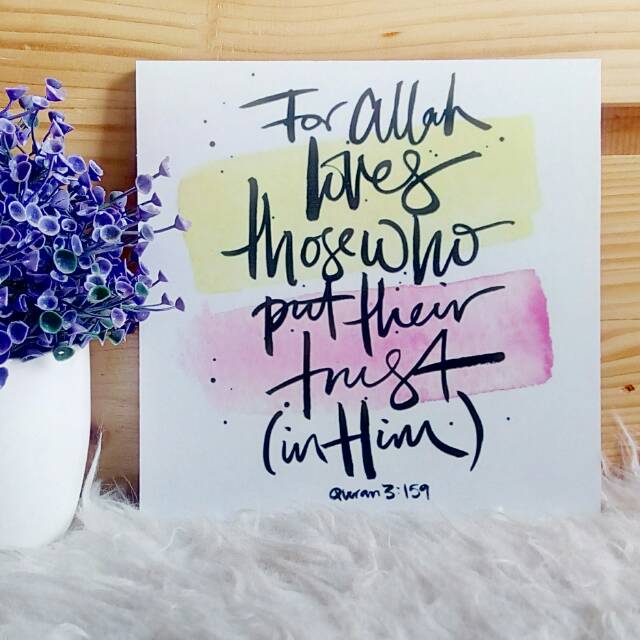 For allah
loves
those who
put their
trust
(in Him)
Quran 3:159